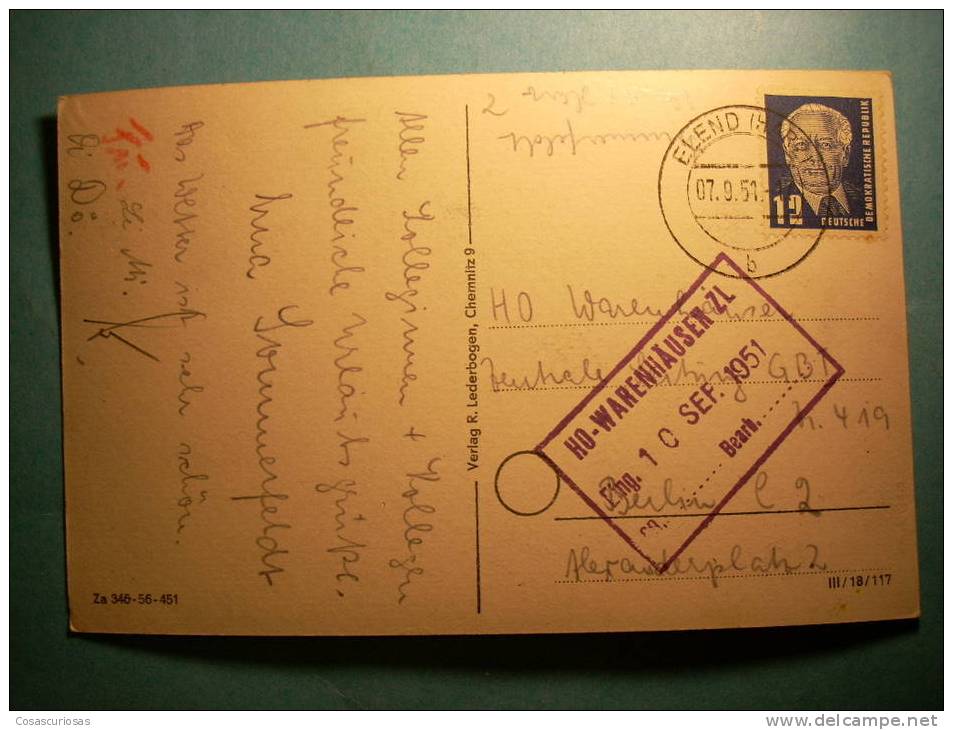 Allen Kolleginnen + Kollegen
freundliche Urlaubsgrüße.
Sommerfeldt
Das Wetter ist sehr schön.
Za 346-56-451
Verlag R. Lederbogen, Chemnitz 9
ELEND (HARZ)
07.9.51
b
12
DEUTSCHE
DEMOKRATISCHE REPUBLIK
HO Warenhäuser
Zentrale Leitung GBI
N. 419
Berlin C 2
Alexanderplatz 2
HO-WARENHÄUSER ZL
Eing. 10 SEP. 1951
Bearb.
III/18/117
Cosascuriosas
www.delcampe.net